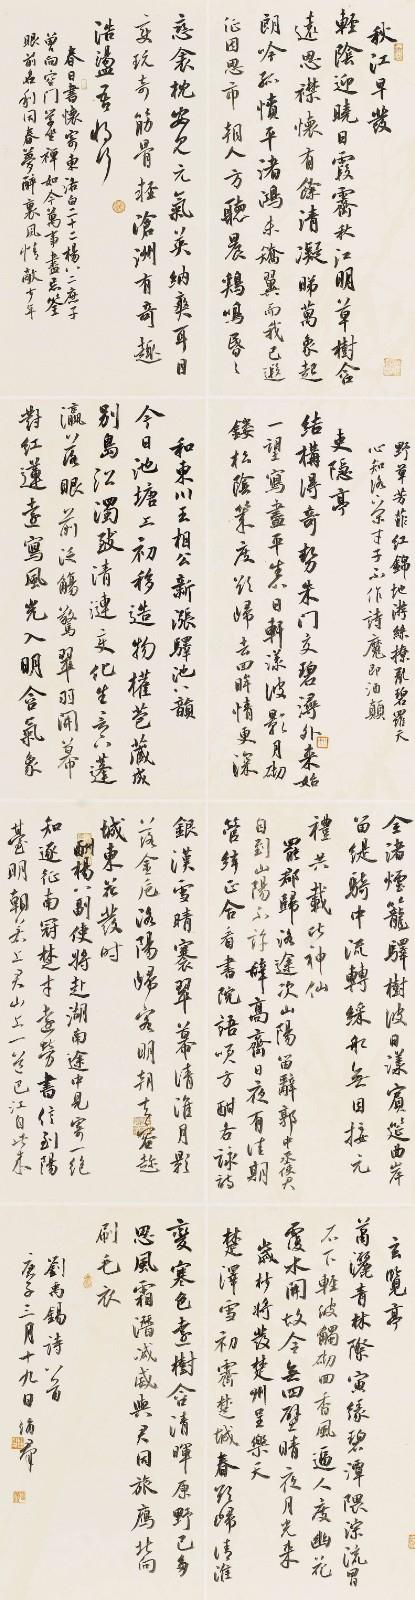 秋江早發
輕陰迎曉日霞霽秋江明草樹含
遠思襟懷有餘清凝睇萬象起
朗吟孤憤平渚鴻未矯翼而我已遐
征因思市朝人方聽晨鷄鳴昏〻
戀衾枕安見元氣英納爽耳目
變玩奇筋骨輕滄洲有奇趣
浩盪吾將行
春日書懷寄東洛白二十二楊八二庶子
曾向空門學坐禪如今萬事盡忘筌
眼前名利同春夢醉裏風情敵少年
野草芳菲紅錦地游絲撩亂碧羅天
心知洛下才子不作詩魔即酒顛
吏隱亭
結構得奇勢朱門交碧潯外來始
一望寫盡平生心日軒漾波影月砌
鏤松陰幾度欲歸去回眸情更深
和東川王相公新漲驛池八韻
今日池塘上初移造物權苞藏成
別島沿濁致清漣變化生言下蓬
瀛落眼前泛觴驚翠羽開幕
對紅蓮遠寫風光入明含氣象
全渚煙籠驛樹波日漾賓筵曲岸
留緹騎中流轉綵船無因接元
禮共載比神仙
罷郡歸洛途次山陽留辭郭中丞使君
自到山陽不許辭高齋日夜有佳期
管絃正合看書院語笑方酣各詠詩
銀漢雪晴褰翠幕清淮月影
落金卮洛陽歸客明朝去容趁
城東花發時
酬楊八副使將赴湖南途中見寄一絕
知逐征南冠楚才遠勞書信到陽
臺明朝若上君山上一道巴江自此來
玄覽亭
蕭灑青林際夤緣碧潭隈淙流冒
石下輕波觸砌回香風逼人度幽花
覆水開故令無四壁晴夜月光來
歲杪將發楚州呈樂天
楚澤雪初霽楚城春欲歸清淮
變寒色遠樹含清暉原野已多
思風霜潛減威與君同旅雁北向
刷毛衣
劉禹錫詩八首
庚子三月十九日